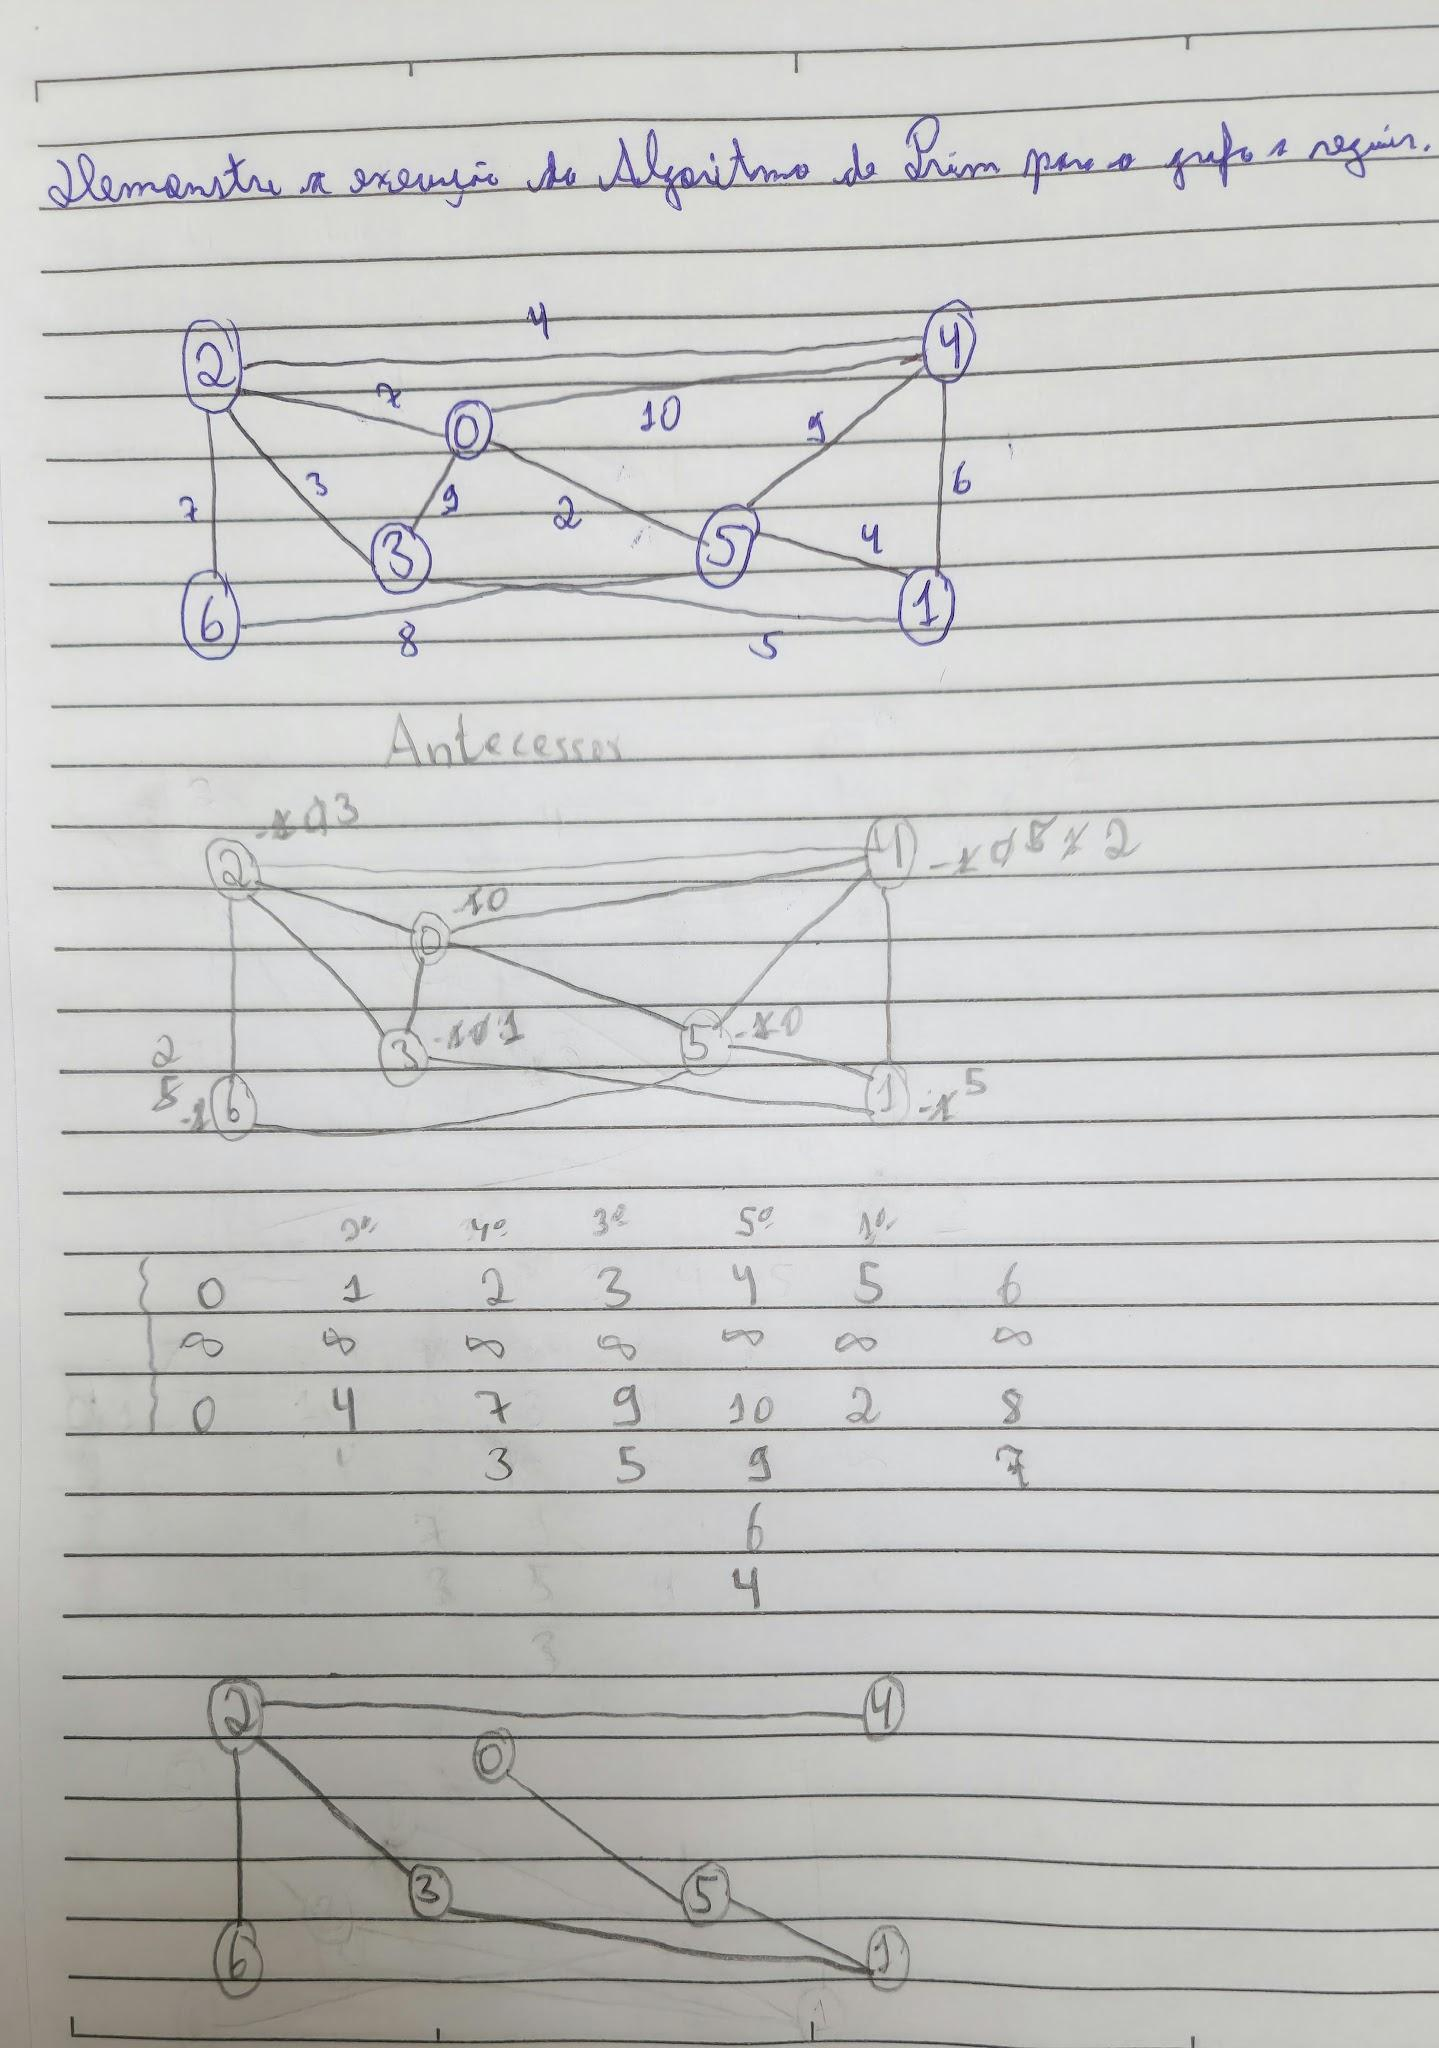 Demonstre a execução do Algoritmo de Prim para o grafo a seguir.
4
2 4
7
0 10 9
7 3 9 2 6
3 5 4
6 1
8 5
Antecessor
-1 0 3
2 4 -1 0 5 1 2
0 -1 0
3 -1 0 1 5 -1 0
2
5
-1 6 1 -1 5
2º 4º 3º 5º 1º
0 1 2 3 4 5 6
∞ ∞ ∞ ∞ ∞ ∞ ∞
0 4 7 9 10 2 8
3 5 9 7
6
4
2 4
0
3 5
6 1